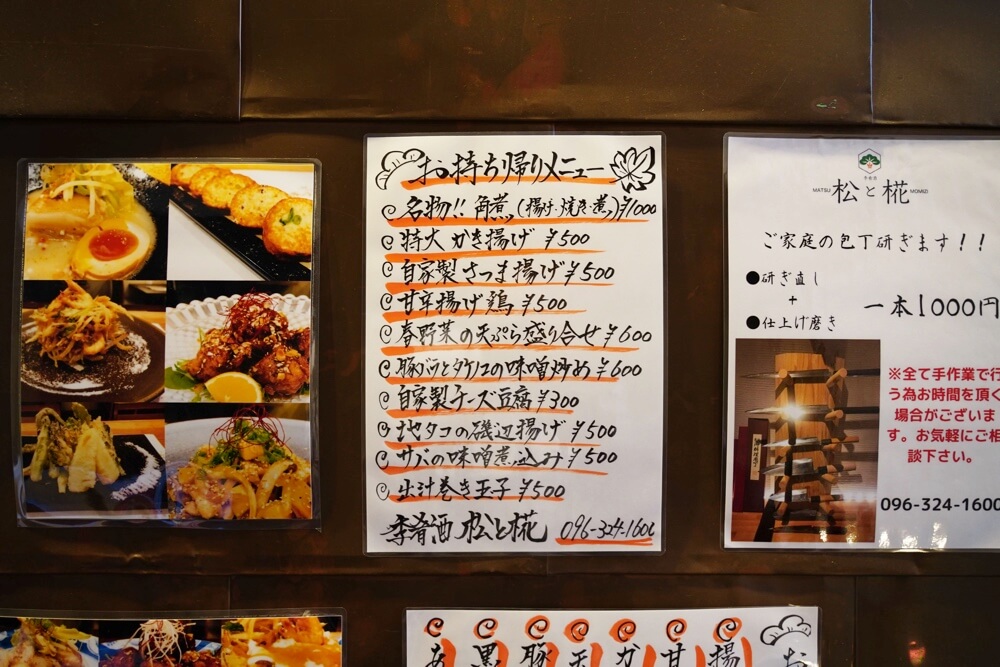 お持ち帰りメニュー
名物!! 角煮(揚げ・焼き・煮)¥1000
特大 かき揚げ ¥500
自家製さつま揚げ ¥500
甘辛揚げ鶏 ¥500
春野菜の天ぷら盛り合せ ¥600
豚バラとタケノコの味噌炒め ¥600
自家製チーズ豆腐 ¥300
地タコの磯辺揚げ ¥500
サバの味噌煮込み ¥500
出汁巻き玉子 ¥500
季肴酒 松と椛 096-324-1600
季肴酒
MATSU 松と椛 MOMIZI
ご家庭の包丁研ぎます!!
●研ぎ直し
+
●仕上げ磨き
一本1000円
※全て手作業で行
う為お時間を頂く
場合がございま
す。お気軽にご相
談下さい。
096-324-1600
お
揚
甘
カ
天
豚
黒
あ